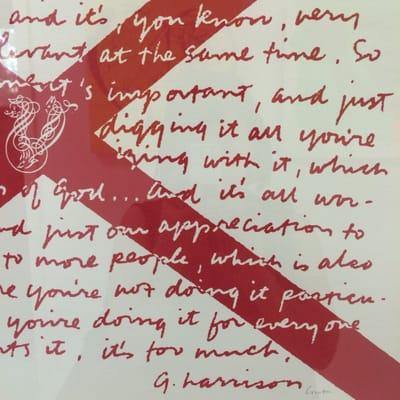 and it's, you know, very
levant at the same time. So
ment's important, and just
digging it all you're
izing with it, which
s of God... And it's all wor-
nd just our appreciation to
to more people, which is also
re you're not doing it particu-
you're doing it for everyone
nts it, it's too much,
G. Harrison